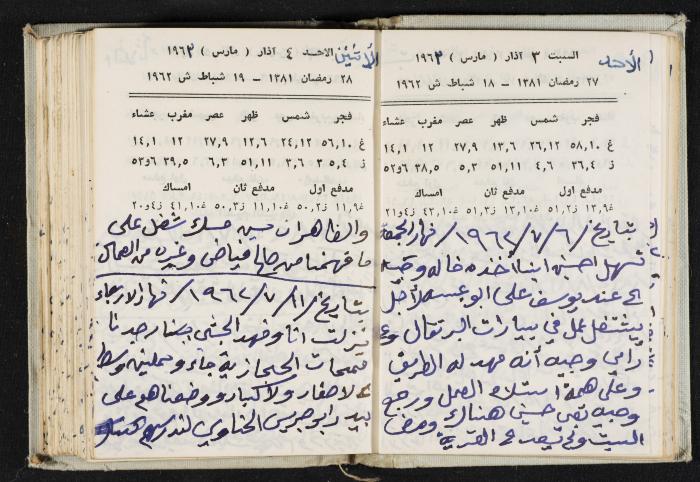 الأحد
السبت ٣ آذار ( مارس ) ١٩٦٢
٢٧ رمضان ١٣٨١ — ١٨ شباط ش ١٩٦٢
فجر شمس ظهر عصر مغرب عشاء
غ ٥٨,١٠ ٢٦,١٢ ١٣,٦ ٢٧,٩ ١٢ ١٤,١
ز ٣٦,٤ ٤,٦ ٥١,١١ ٥,٣ ٣٨,٥ ٥٢و٦
مدفع اول مدفع ثان امساك
غ١٣,٩ ز٥١,٢ غ١٣,١٠ ز٥١,٣ غ٤٣,١٠ ز٢١و٤
بتاريخ /٦/ ٧/ ١٩٦٢/ نهار الجمعة
تسهل احسن ابننا أخذه خاله وجيه
عند يوسف على ابو عبسه لأجل
يشتغل عمل في بيارات البرتقال
وجيه أنه مهد له الطريق
وعلى همة استلام العمل ورجع
وجيه بقى حسين هناك
البيت القرية
الأثنين
الاحد ٤ آذار ( مارس ) ١٩٦٢
٢٨ رمضان ١٣٨١ — ١٩ شباط ش ١٩٦٢
فجر شمس ظهر عصر مغرب عشاء
غ ٥٦,١٠ ٢٤,١٢ ١٢,٦ ٢٧,٩ ١٢ ١٤,١
ز ٣٥,٤ ٣,٦ ٥١,١١ ٦,٣ ٣٩,٥ ٥٢و٦
مدفع اول مدفع ثان امساك
غ٩,١١ ز٥٠,٢ غ١١,١٠ ز٥٠,٣ غ٤١,١٠ ز٢٠و٤
والظاهر ان حسين مسك شغل على
ما فهمنا من صالح فياض وغيره من العمال
بتاريخ /١١/ ٧/ ١٩٦٢/ نهار الاربعاء
نزلت انا وفهد الجشي جبنا رجدنا
قمحات الحجازية جاء وحملين وسط
لا صغار ولا كبار ووضعناهم على
بيدر ابو جريس الخناوي